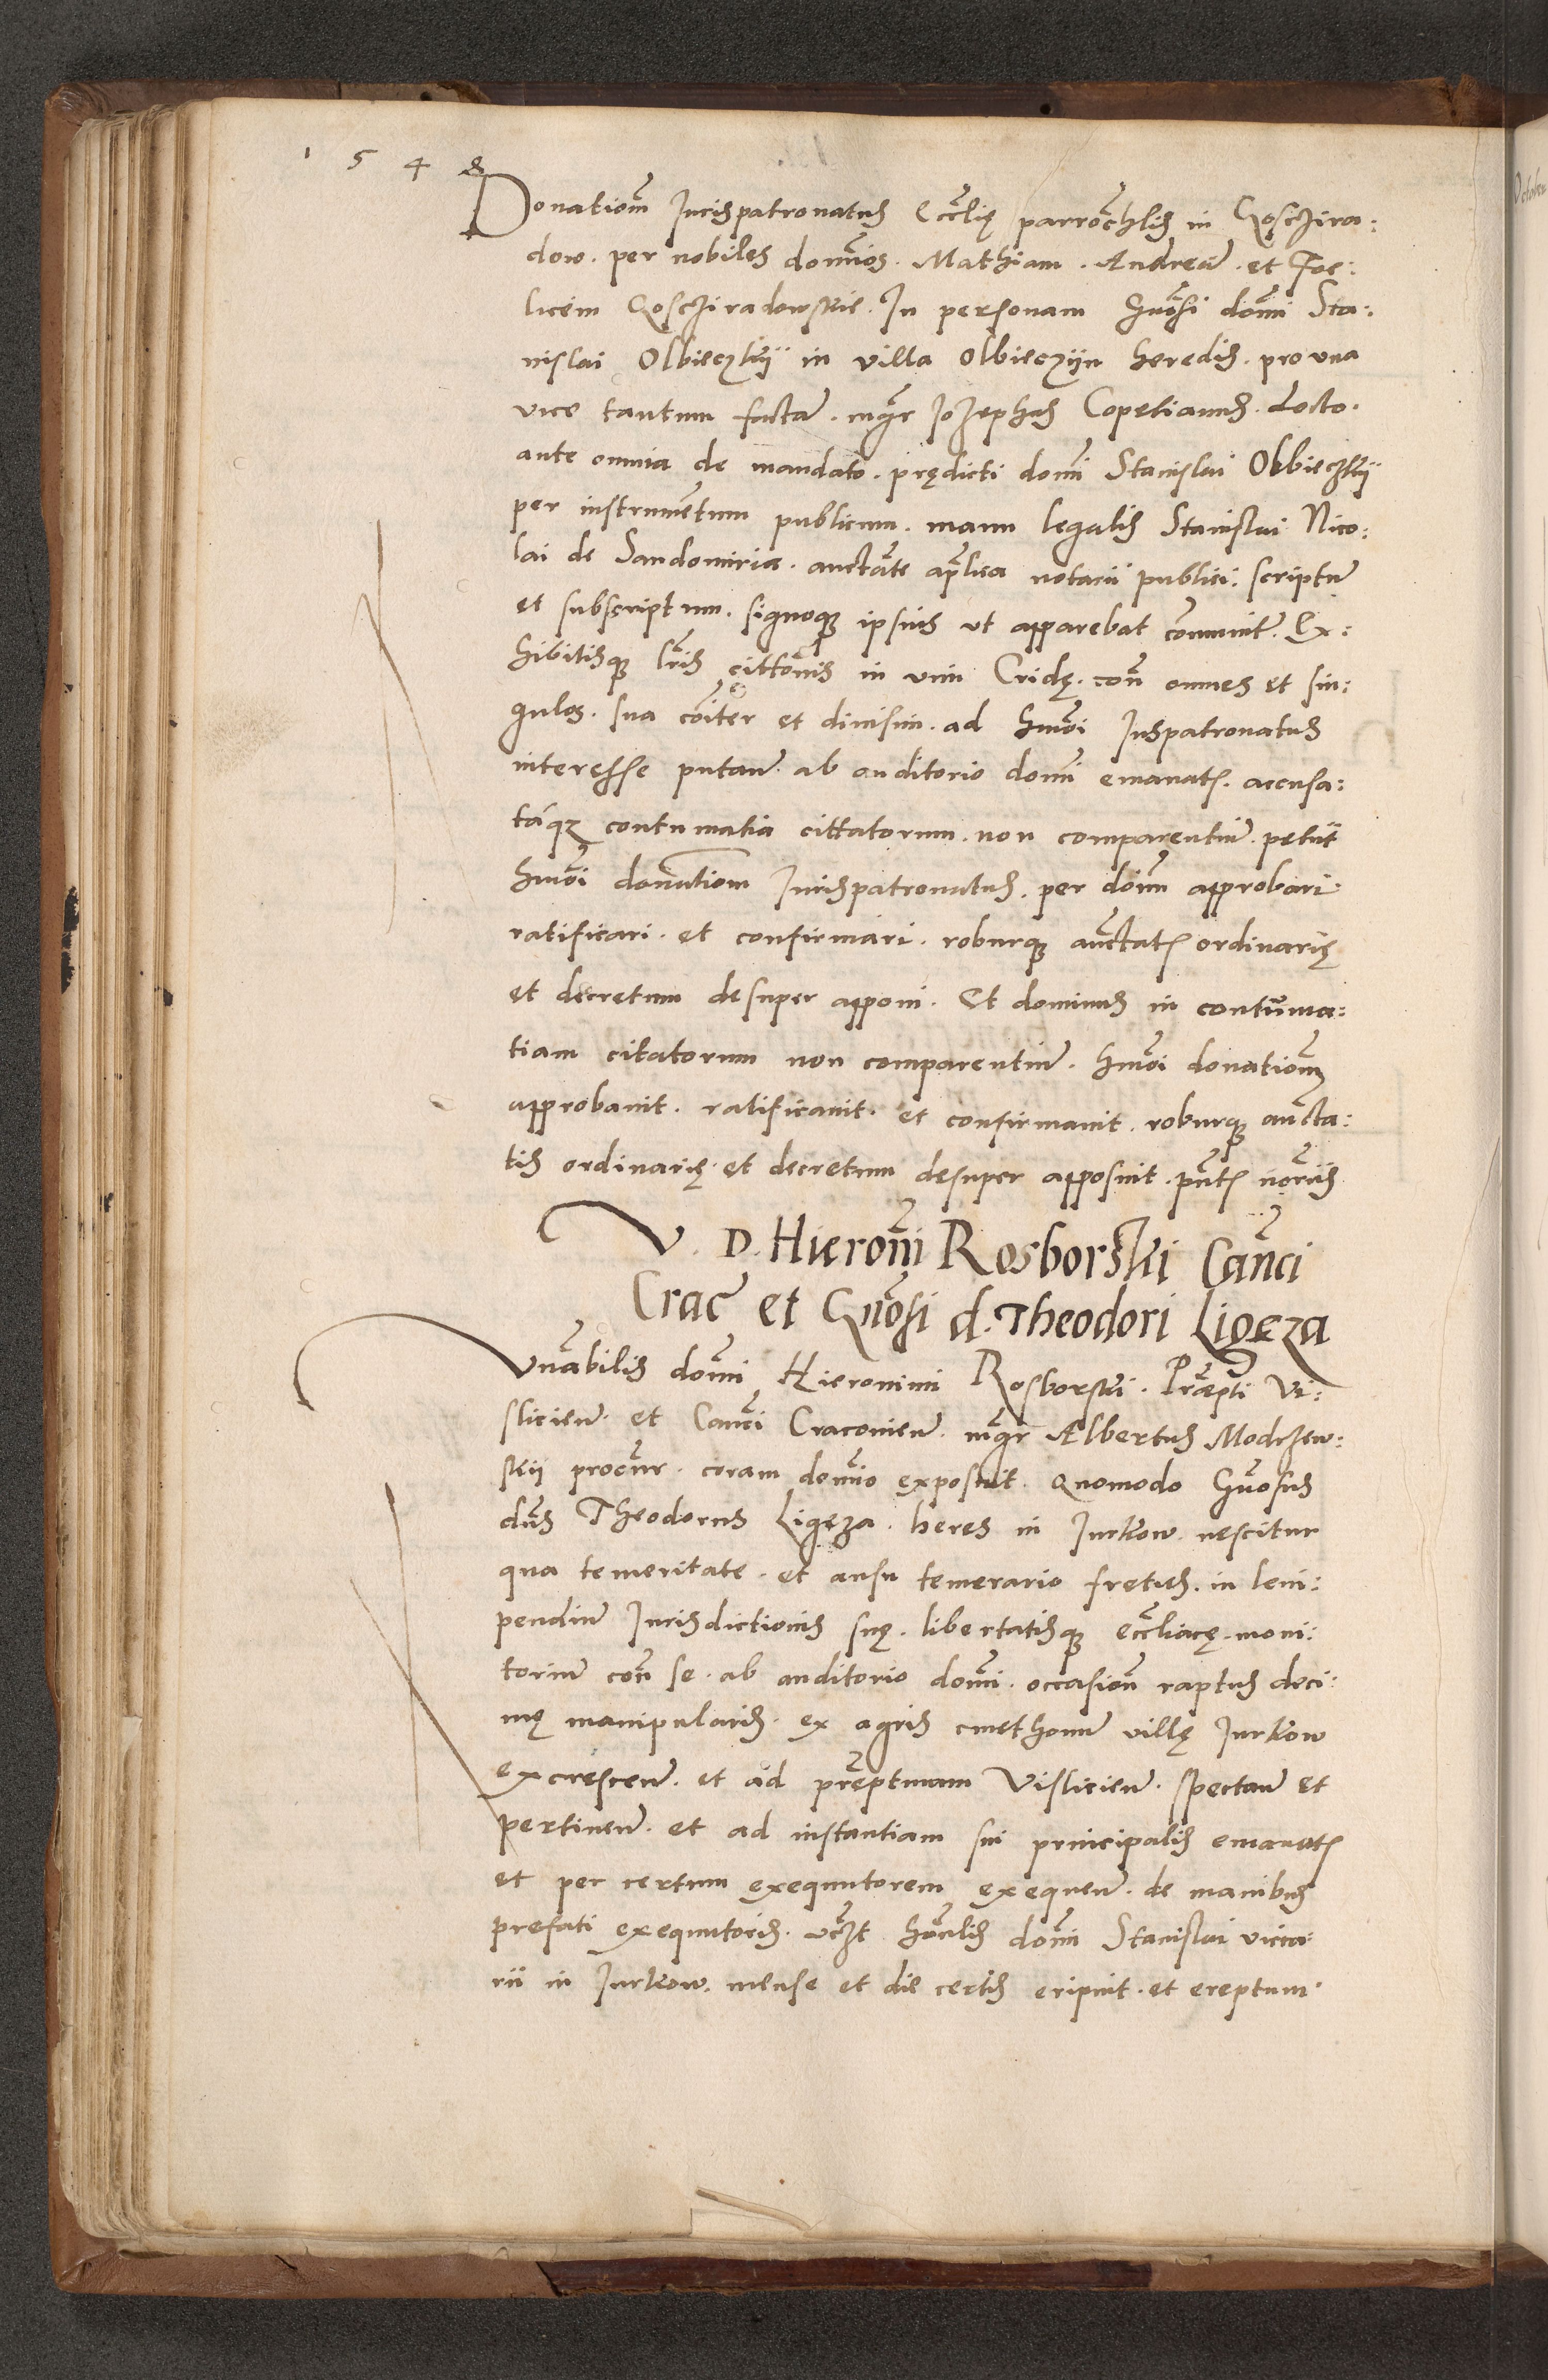 1 5 4 8
Donatiom̃ Jurispatronatus Eccl̃ię parroc̃hlis in Gosczira:
dow. per nobiles domĩos. Mathiam. Andreã. et Foe:
licem Goscziradowskie. In personam Gñosi domĩ Sta:
nislai Olbieczkÿ in villa Olbieczÿn heredis. pro vna
vice tantum factã. mg̃r Jozephus Copetianus. docto.
ante omnia de mandato. prędicti domĩ Stanislai Olbieczkÿ
per instrumẽtum publicum. manu legalis Stanislai Nico:
lai de Sandomiria. auctãte ap̃lica notarii publici. scriptũ
et subscriptum. signoque ipsius vt apparebat com̃unitũ. Ex:
hibitisque lr̃is cittõnis in vim Cridę. con̄ omnes et sin:
gulos. sua cõiter et diuisim. ad hmõi Juspatronatus
interesse putan̄. ab auditorio domĩ emanatis. accusa:
táque contumatia cittatorum. non comparentiũ. petiit
hmõi donatiom̃ Jurispatronatus. per domĩm approbari.
ratificari. et confirmari. roburque auc̃tatis ordinarię
et decretum desuper apponi. Et dominus in contuma:
tiam citatorum non comparentiũ. hmõi donatiom̃
approbauit. ratificauit. et confirmauit. roburque auc̃ta:
tis ordinarię. et decretum desuper apposuit. pñtis not̃riis
V. D. Hieronĩ Rosborskii Canc̃i
Crac̃ et Gñosi d. Theodori Ligeza
Vñabilis domĩ Hieronimi Rosborskii. Præpti Vi:
slicien̄. et Canc̃i Cracouien̄. mg̃r Albertus Modrzew:
skii procur̃. coram domĩo exposuit. Quomodo Gñosus
dñs Theodorus Ligęza. heres in Jurkow. nescitur
qua temeritate. et ausu temerario fretus. in leui:
pendiũ Jurisdictionis suę. libertatisque eccl̃iacę. moni:
toriũ con̄ se. ab auditorio domĩ. occasion̄ raptus deci:
mę manipularis. ex agris cmethonũ villę Jurkow
excrescen̄. et ad prępturam Vislicien̄. spectan̄ et
pertinen̄. et ad instantiam sui principalis emanatis
et per certum exequutorem exequen̄. de manibus
prefati exequutoris. vc̃zt hon̄lis domĩ Stanislai vica:
rii in Jurkow. mense et die certis eripuit. et ereptum.